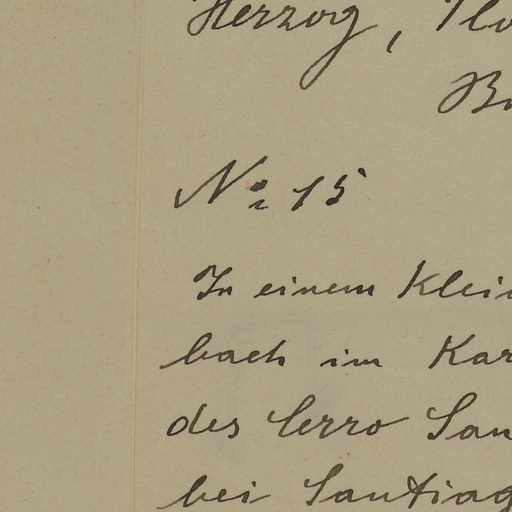 Herzog, Flo
Br
No 15
In einem Klein
bach im Kar
des Cerro San
bei Santiag